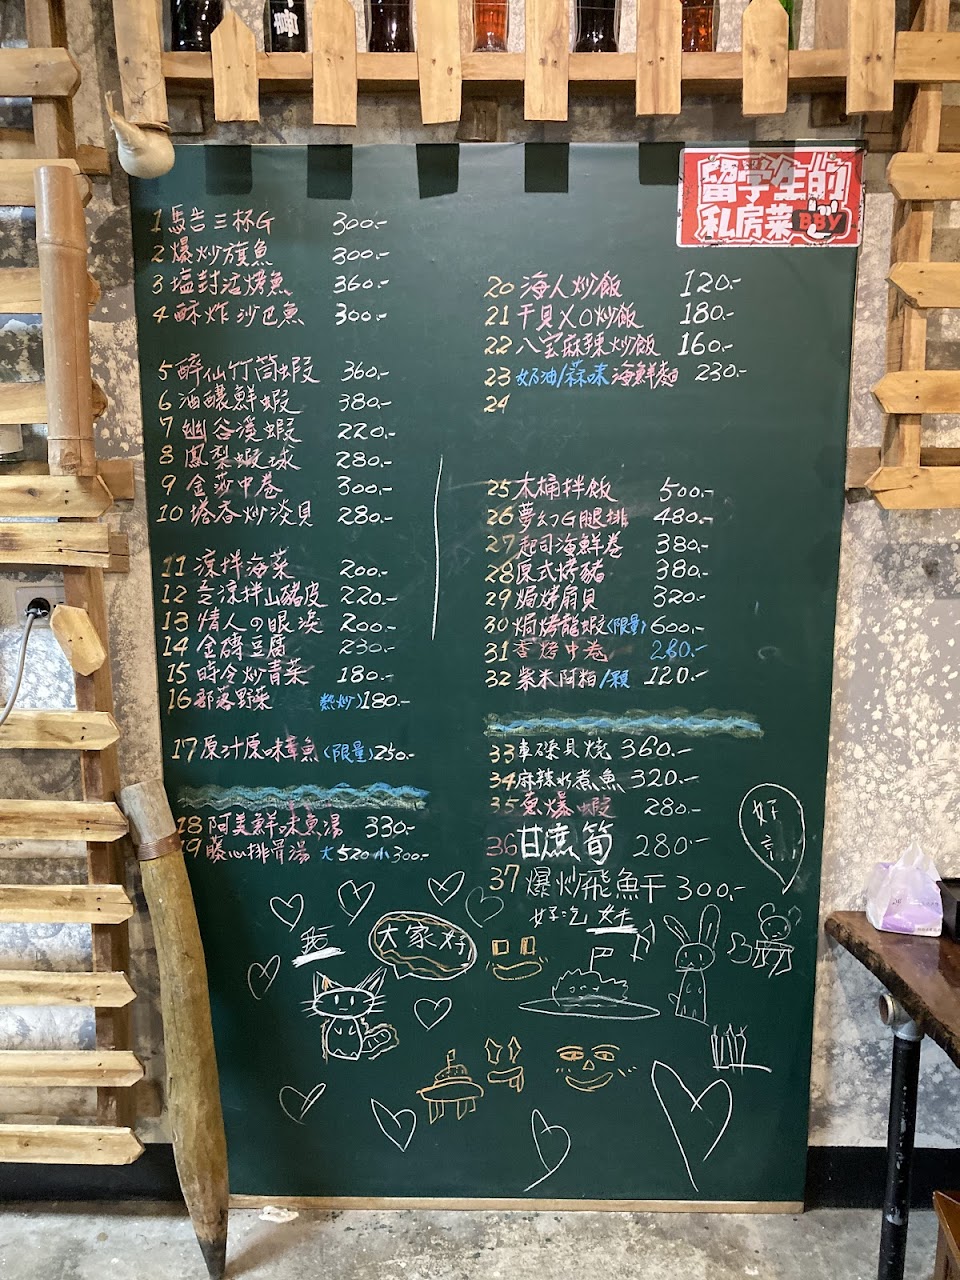 留学生的
私房菜 BBY
1 馬告三杯G 300.-
2 爆炒旗魚 300.-
3 塩封活烤魚 360.-
4 酥炸沙巴魚 300.-
5 醉仙竹筒蝦 360.-
6 油釀鮮蝦 380.-
7 幽谷溪蝦 220.-
8 鳳梨蝦球 280.-
9 金莎中卷 300.-
10 塔香炒淡貝 280.-
11 涼拌海菜 200.-
12 涼拌山豬皮 220.-
13 情人の眼淚 200.-
14 金磚豆腐 230.-
15 時令炒青菜 180.-
16 部落野菜 熱炒 180.-
17 原汁原味章魚(限量)250.-
18 阿美鮮味魚湯 330.-
19 藤心排骨湯 大520 小300.-
20 海人炒飯 120.-
21 干貝XO炒飯 180.-
22 八宝麻辣炒飯 160.-
23 奶油/蒜味海鮮麵 230.-
24
25 木桶拌飯 500.-
26 夢幻G腿排 480.-
27 起司海鮮卷 380.-
28 原式烤豬 380.-
29 焗烤扇貝 320.-
30 焗烤龍蝦(限量)600.-
31 香烤中卷 280.-
32 紫米阿粨/顆 120.-
33 車磲貝燒 360.-
34 麻辣水煮魚 320.-
35 蔥爆蝦 280.-
36 甘蔗筍 280.-
37 爆炒飛魚干 300.-
好吃
大家好
好